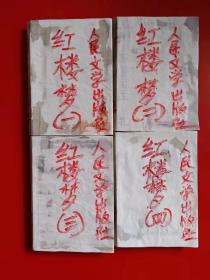 红楼梦(一)
人民文学出版社
红楼梦(二)
人民文学出版社
红楼梦(三)
人民文学出版社
红楼梦(四)
人民文学出版社